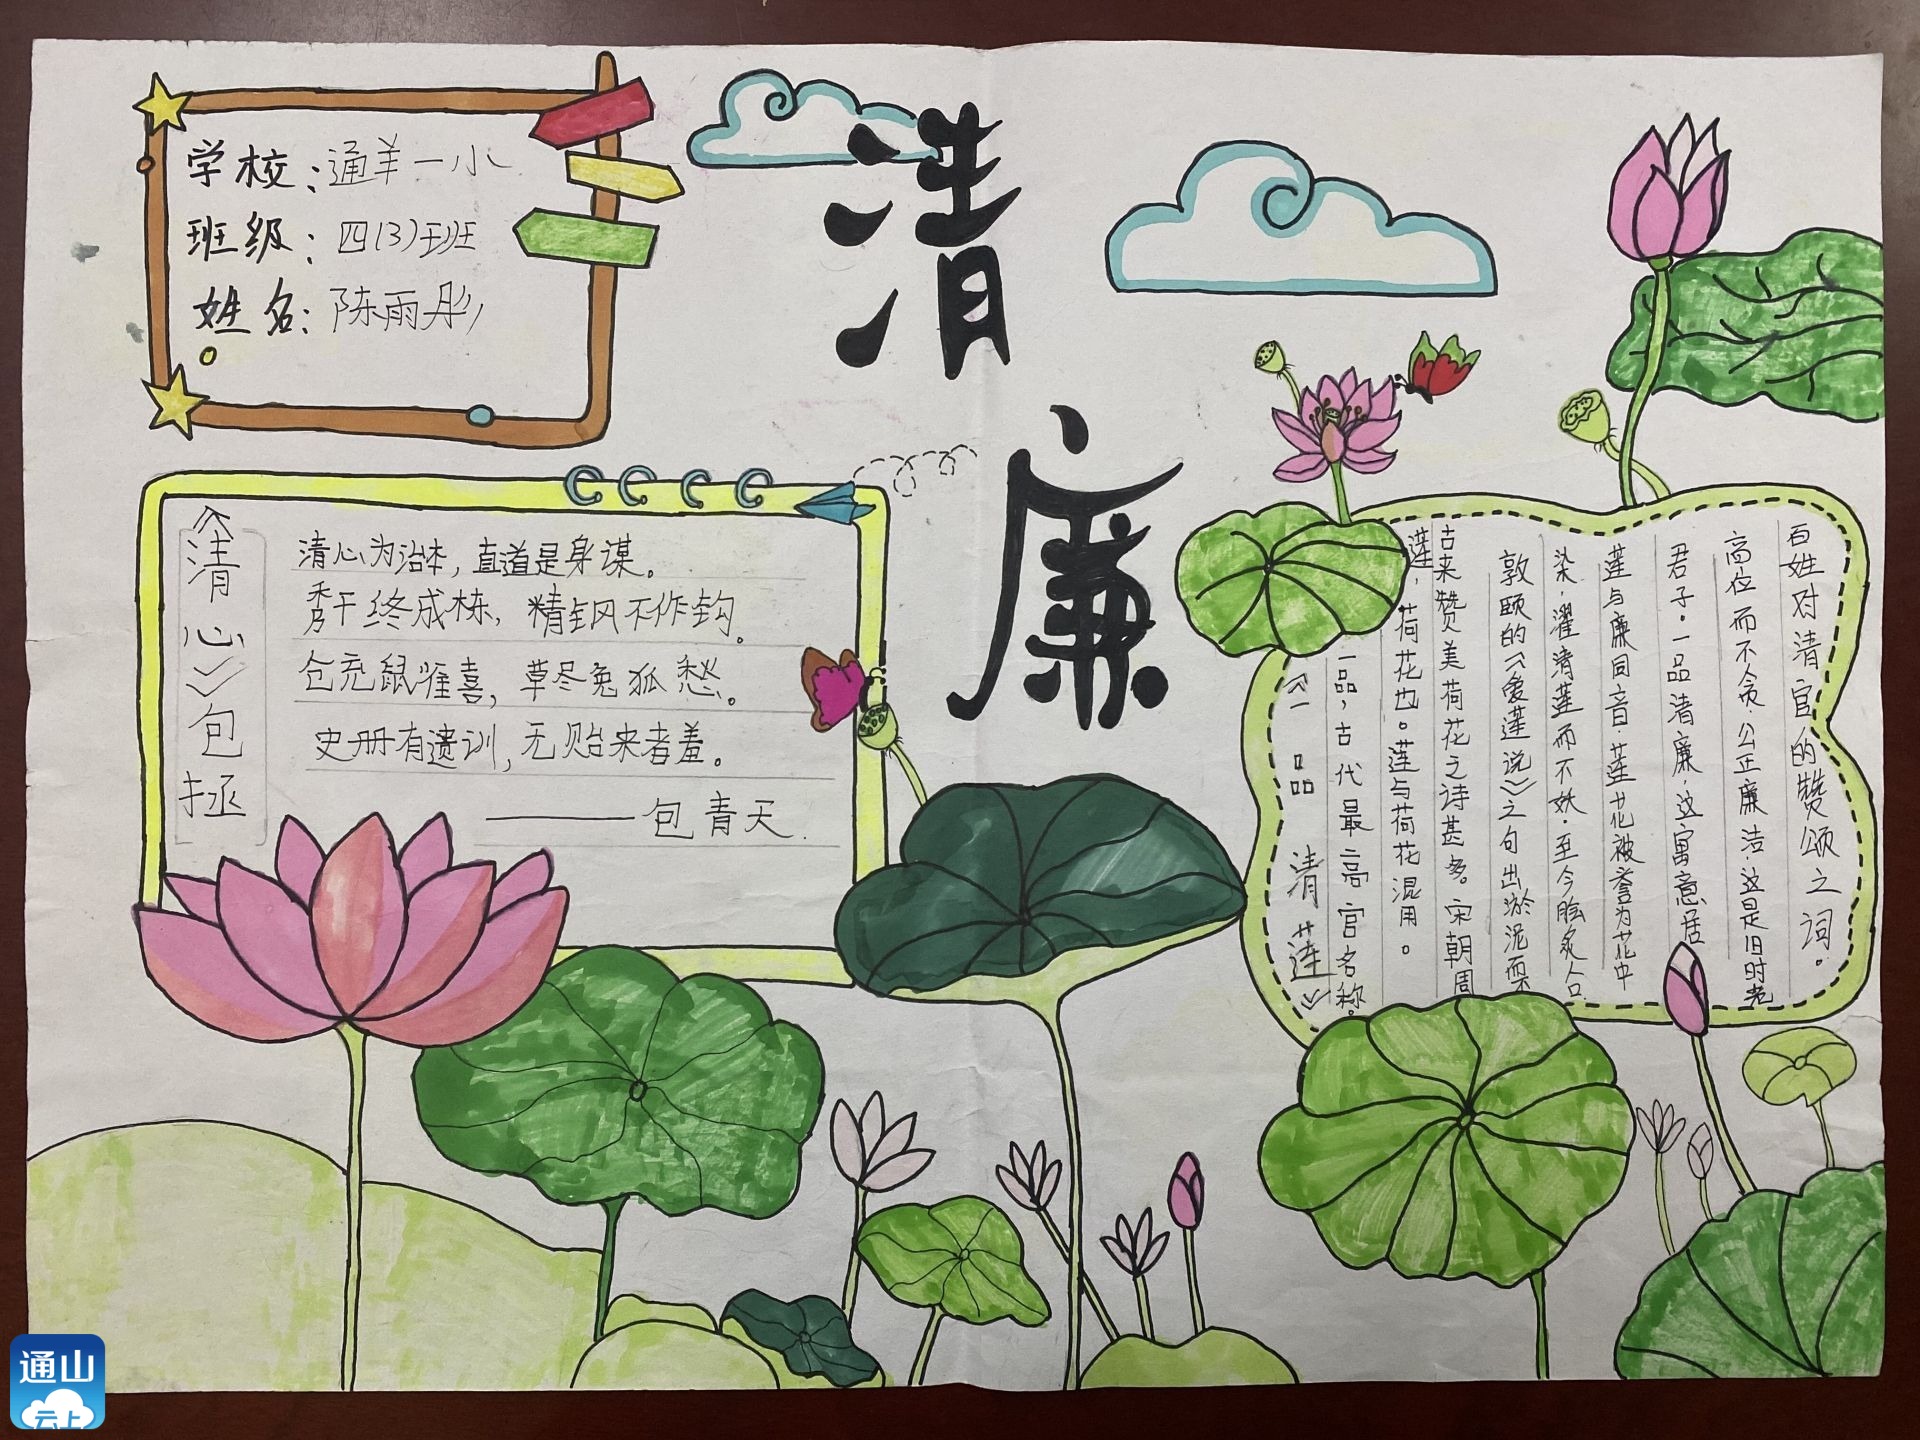 学校:通羊一小
班级:四(3)班
姓名:陈雨彤
清
廉
《清心》包拯
清心为治本,直道是身谋。
秀干终成栋,精钢不作钩。
仓充鼠雀喜,草尽兔狐愁。
史册有遗训,无贻来者羞。
——包青天.
《一品清莲》
一品,古代最高官名称。
莲,荷花也。莲与荷花混用。
古来赞美荷花之诗甚多。宋朝周
敦颐的《爱莲说》之句出淤泥而不
染.濯清莲而不妖.至今脍炙人口
莲与廉同音.莲花被誉为花中
君子。一品清廉.这寓意居
高位而不贪.公正廉洁.这是旧时老
百姓对清官的赞颂之词。
通山
云上